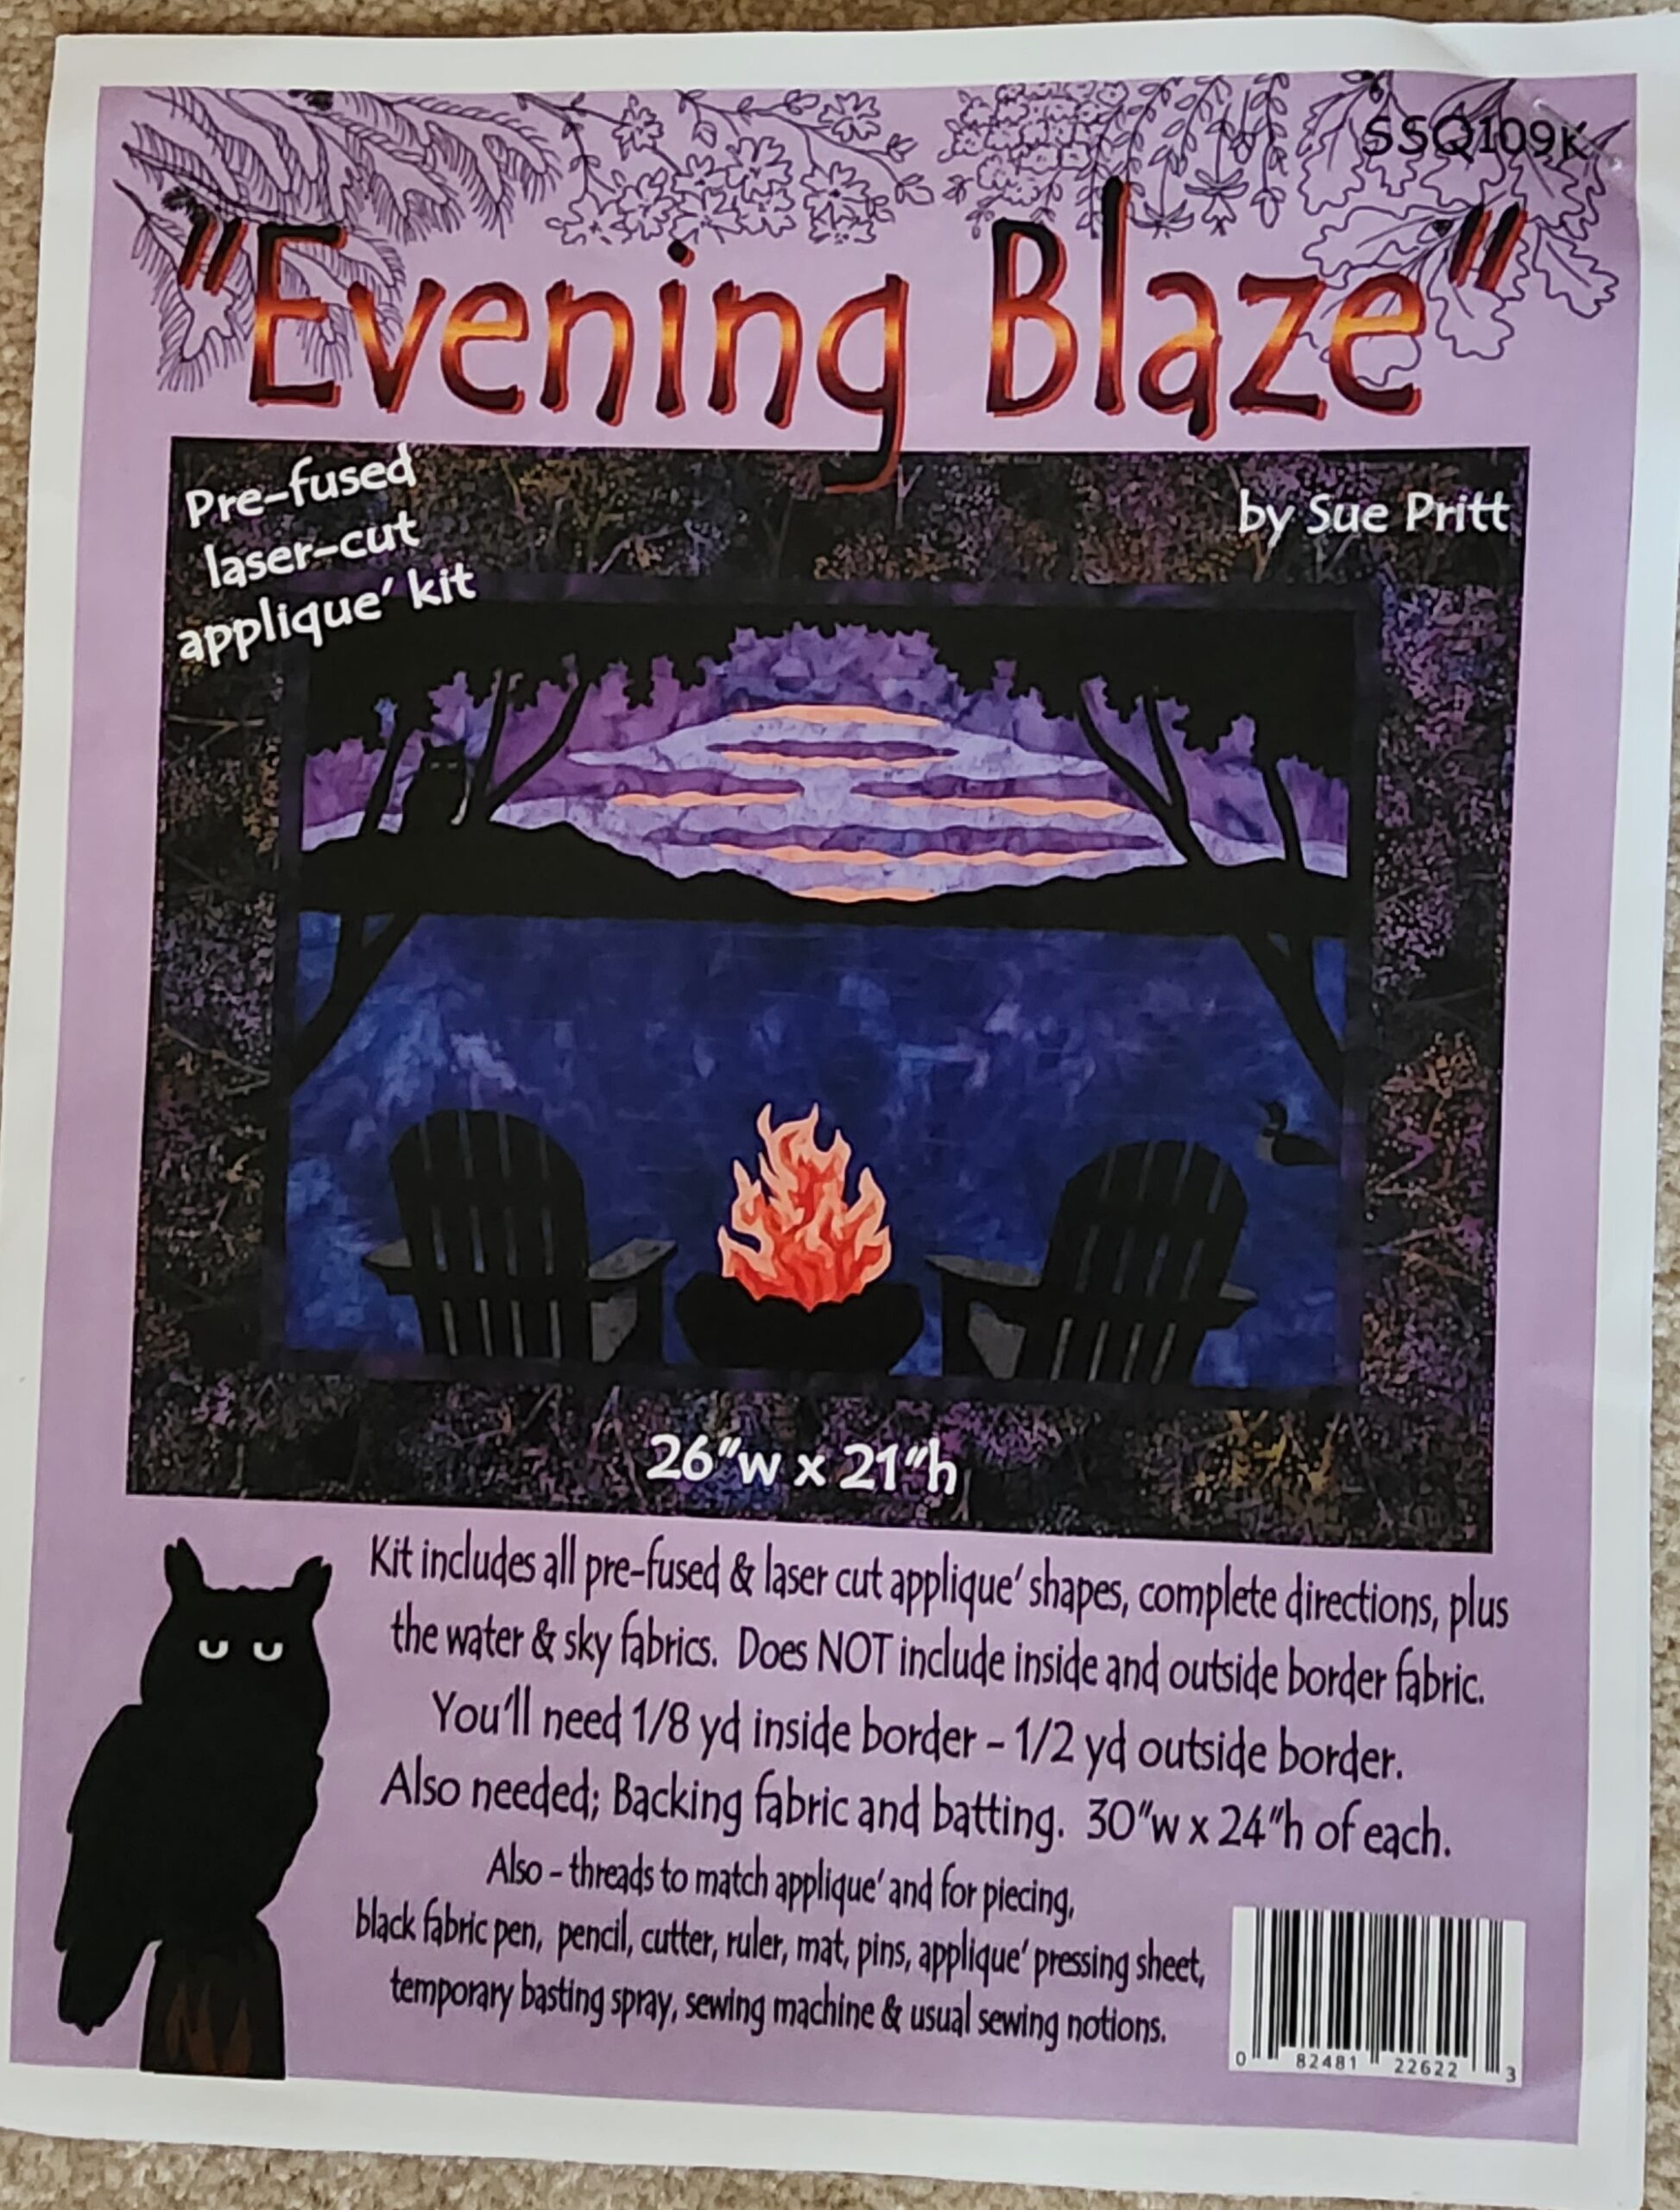 SSQ109K
"Evening Blaze"
Pre-fused
laser-cut
applique' kit
by Sue Pritt
26"w x 21"h
Kit includes all pre-fused & laser cut applique' shapes, complete directions, plus
the water & sky fabrics. Does NOT include inside and outside border fabric.
You'll need 1/8 yd inside border - 1/2 yd outside border.
Also needed; Backing fabric and batting. 30"w x 24"h of each.
Also - threads to match applique' and for piecing,
black fabric pen, pencil, cutter, ruler, mat, pins, applique' pressing sheet,
temporary basting spray, sewing machine & usual sewing notions.
0 82481 22622 3